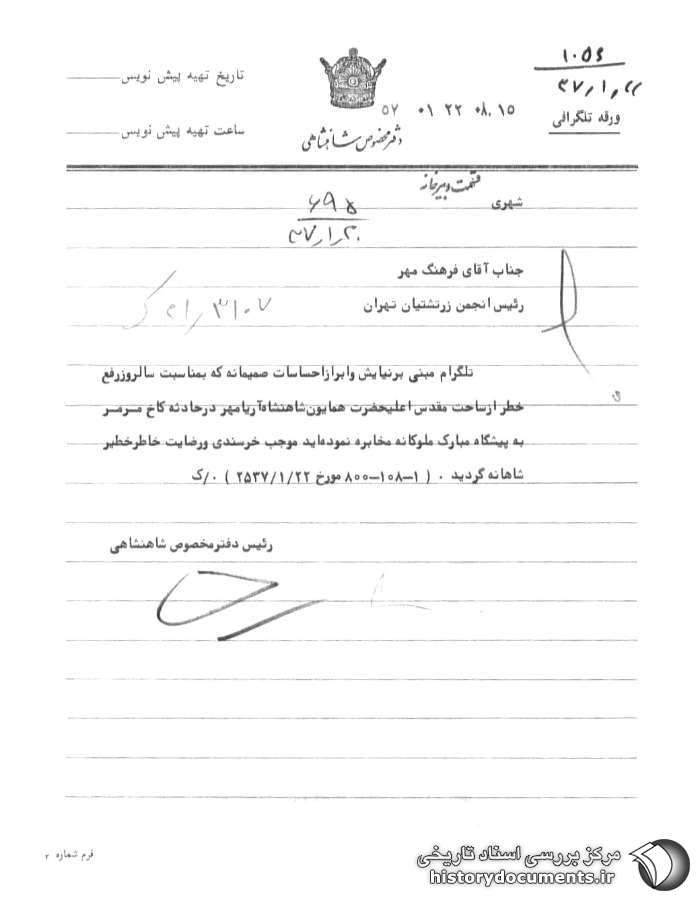 ۱۰۵۶
تاریخ تهیه پیش نویس
۵۷ ۰۱ ۲۲ ۰۸.۱۵
ورقه تلگرافی
ساعت تهیه پیش نویس
دفتر مخصوص شاهنشاهی
قسمت دبیرخانه
شهری
۶۹۵
۳۷/۱/۲۰
جناب آقای فرهنگ مهر
رئیس انجمن زرتشتیان تهران
تلگرام مبنی برنیایش وابرازاحساسات صمیمانه که بمناسبت سالروزرفع
خطر ازساحت مقدس اعلیحضرت همایون شاهنشاه آریامهر درحادثه کاخ مرمر
به پیشگاه مبارک ملوکانه مخابره نموده‌اید موجب خرسندی ورضایت خاطرخطیر
شاهانه گردید . ( ۱-۱۰۸-۸۰۰ مورخ ۲۵۳۷/۱/۲۲ ) ۰/ک
رئیس دفترمخصوص شاهنشاهی
فرم شماره ۲
مرکز بررسی اسناد تاریخی
historydocuments.ir